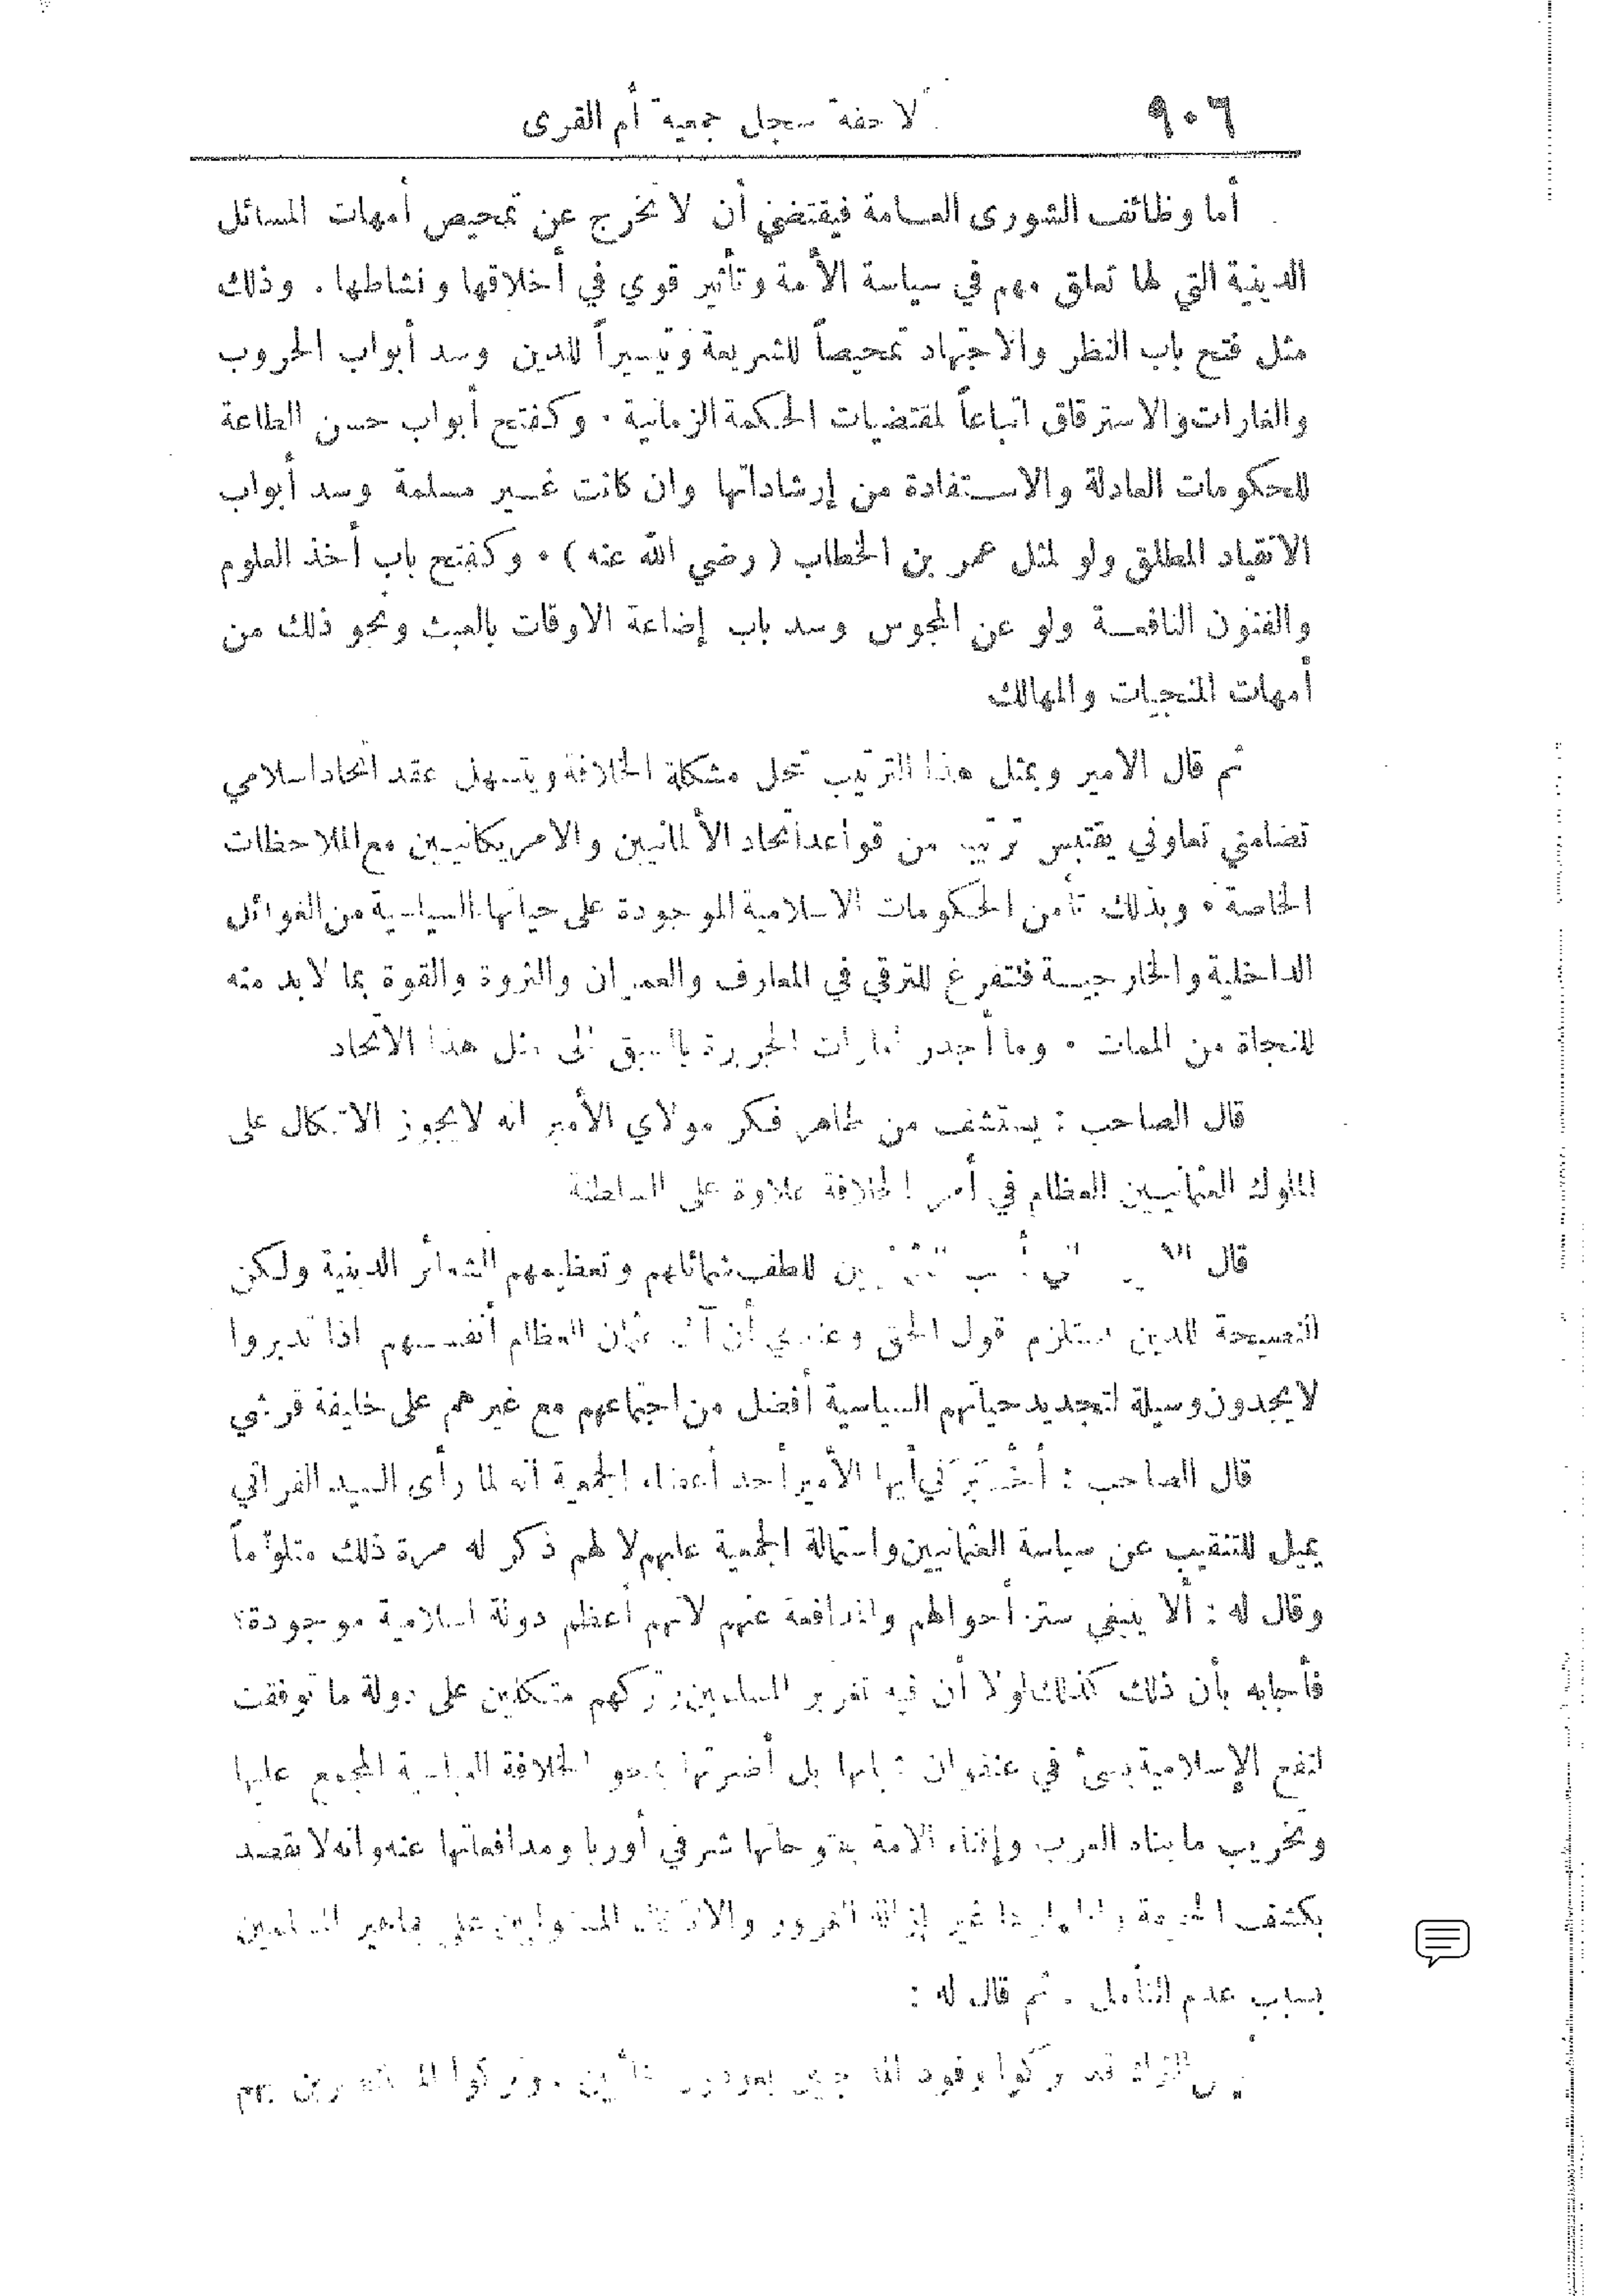 ٩٠٦ لاحقة سجل جمعية أم القرى
أما وظائف الشورى العامة فيقتضي أن لا تخرج عن تمحيص أمهات المسائل
الدينية التي لها تعلق مهم في سياسة الأمة وتأثير قوي في أخلاقها ونشاطها . وذلك
مثل فتح باب النظر والاجتهاد تمحيصاً للشريعة وتيسيراً للدين وسد أبواب الحروب
والغارات والاسترقاق اتباعاً لمقتضيات الحكمة الزمانية . وكفتح أبواب حسن الطاعة
للحكومات العادلة والاستفادة من إرشاداتها وان كانت غير مسلمة وسد أبواب
الانقياد المطلق ولو لمثل عمر بن الخطاب ( رضي الله عنه ) . وكفتح باب أخذ العلوم
والفنون النافعة ولو عن المجوس وسد باب إضاعة الاوقات بالعبث ونحو ذلك من
أمهات المنجيات والمهالك
ثم قال الامير وبمثل هذا الترتيب تحل مشكلة الخلافة ويتسهل عقد اتحاد اسلامي
تضامني تعاوني يقتبس ترتيبه من قواعد اتحاد الألمانيين والامريكانيين مع الملاحظات
الخاصة . وبذلك تأمن الحكومات الاسلامية الموجودة على حياتها السياسية من الغوائل
الداخلية والخارجية فتتفرغ للترقي في المعارف والعمران والثروة والقوة بما لا بد منه
للنجاة من الممات . وما أجدر امارات الجزيرة بالسبق الى مثل هذا الاتحاد
قال الصاحب : يستشف من ظاهر فكر مولاي الأمير انه لا يجوز الاتكال على
الملوك العثمانيين العظام في أمر الخلافة علاوة على السلطنة
قال للطف شمائلهم وتعظيمهم الشعائر الدينية ولكن
النصيحة للدين تستلزم قول الحق وعندي أن آل عثمان العظام أنفسهم اذا تدبروا
لا يجدون وسيلة لتجديد حياتهم السياسية أفضل من اجتماعهم مع غيرهم على خليفة قرشي
قال الصاحب : أيها الأمير أحد أعضاء الجمعية انه لما رأى السيد الفراتي
يميل للتنقيب عن سياسة العثمانيين واستمالة الجمعية عليهم لا لهم ذكر له مرة ذلك متلوماً
وقال له : ألا ينبغي ستر أحوالهم والمدافعة عنهم لانهم أعظم دولة اسلامية موجودة ؟
فأجابه بأن ذلك كذلك لولا أن فيه تغرير المسلمين بتركهم متكلين على دولة ما توفقت
لنفع الإسلامية بشئ في عنفوان شبابها بل أضرتها بمحو الخلافة العباسية المجمع عليها
وتخريب ما بناه العرب وإفناء الامة بفتوحاتها شرقي أوربا ومدافعاتها عنه وانه لا يقصد
بكشف غير إزالة الغرور والاتكال المستولين على جماهير المسلمين
بسبب عدم التأمل . ثم قال له :
الترك قد تركوا وفود